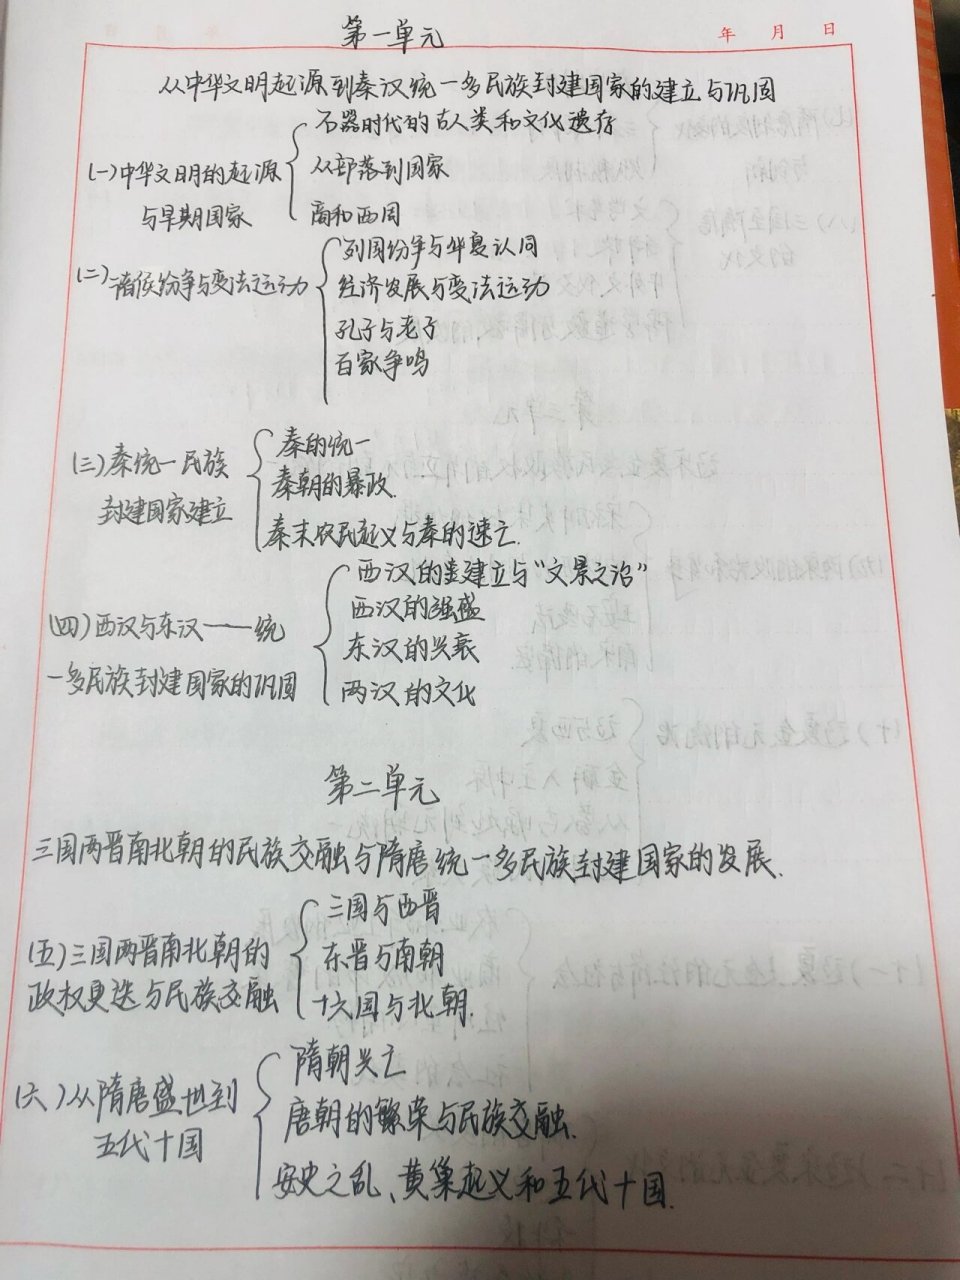 第一单元
年 月 日
从中华文明起源到秦汉统一多民族封建国家的建立与巩固
(一)中华文明的起源
与早期国家
石器时代的古人类和文化遗存
从部落到国家
商和西周
(二)诸侯纷争与变法运动
列国纷争与华夏认同
经济发展与变法运动
孔子与老子
百家争鸣
(三)秦统一民族
封建国家建立
秦的统一
秦朝的暴政.
秦末农民起义与秦的速亡.
(四)西汉与东汉——统
一多民族封建国家的巩固
西汉的建立与“文景之治”
西汉的强盛
东汉的兴衰
两汉的文化
第二单元
三国两晋南北朝的民族交融与隋唐统一多民族封建国家的发展.
(五)三国两晋南北朝的
政权更迭与民族交融
三国与西晋
东晋与南朝
十六国与北朝.
(六)从隋唐盛世到
五代十国
隋朝兴亡
唐朝的繁荣与民族交融.
安史之乱、黄巢起义和五代十国.